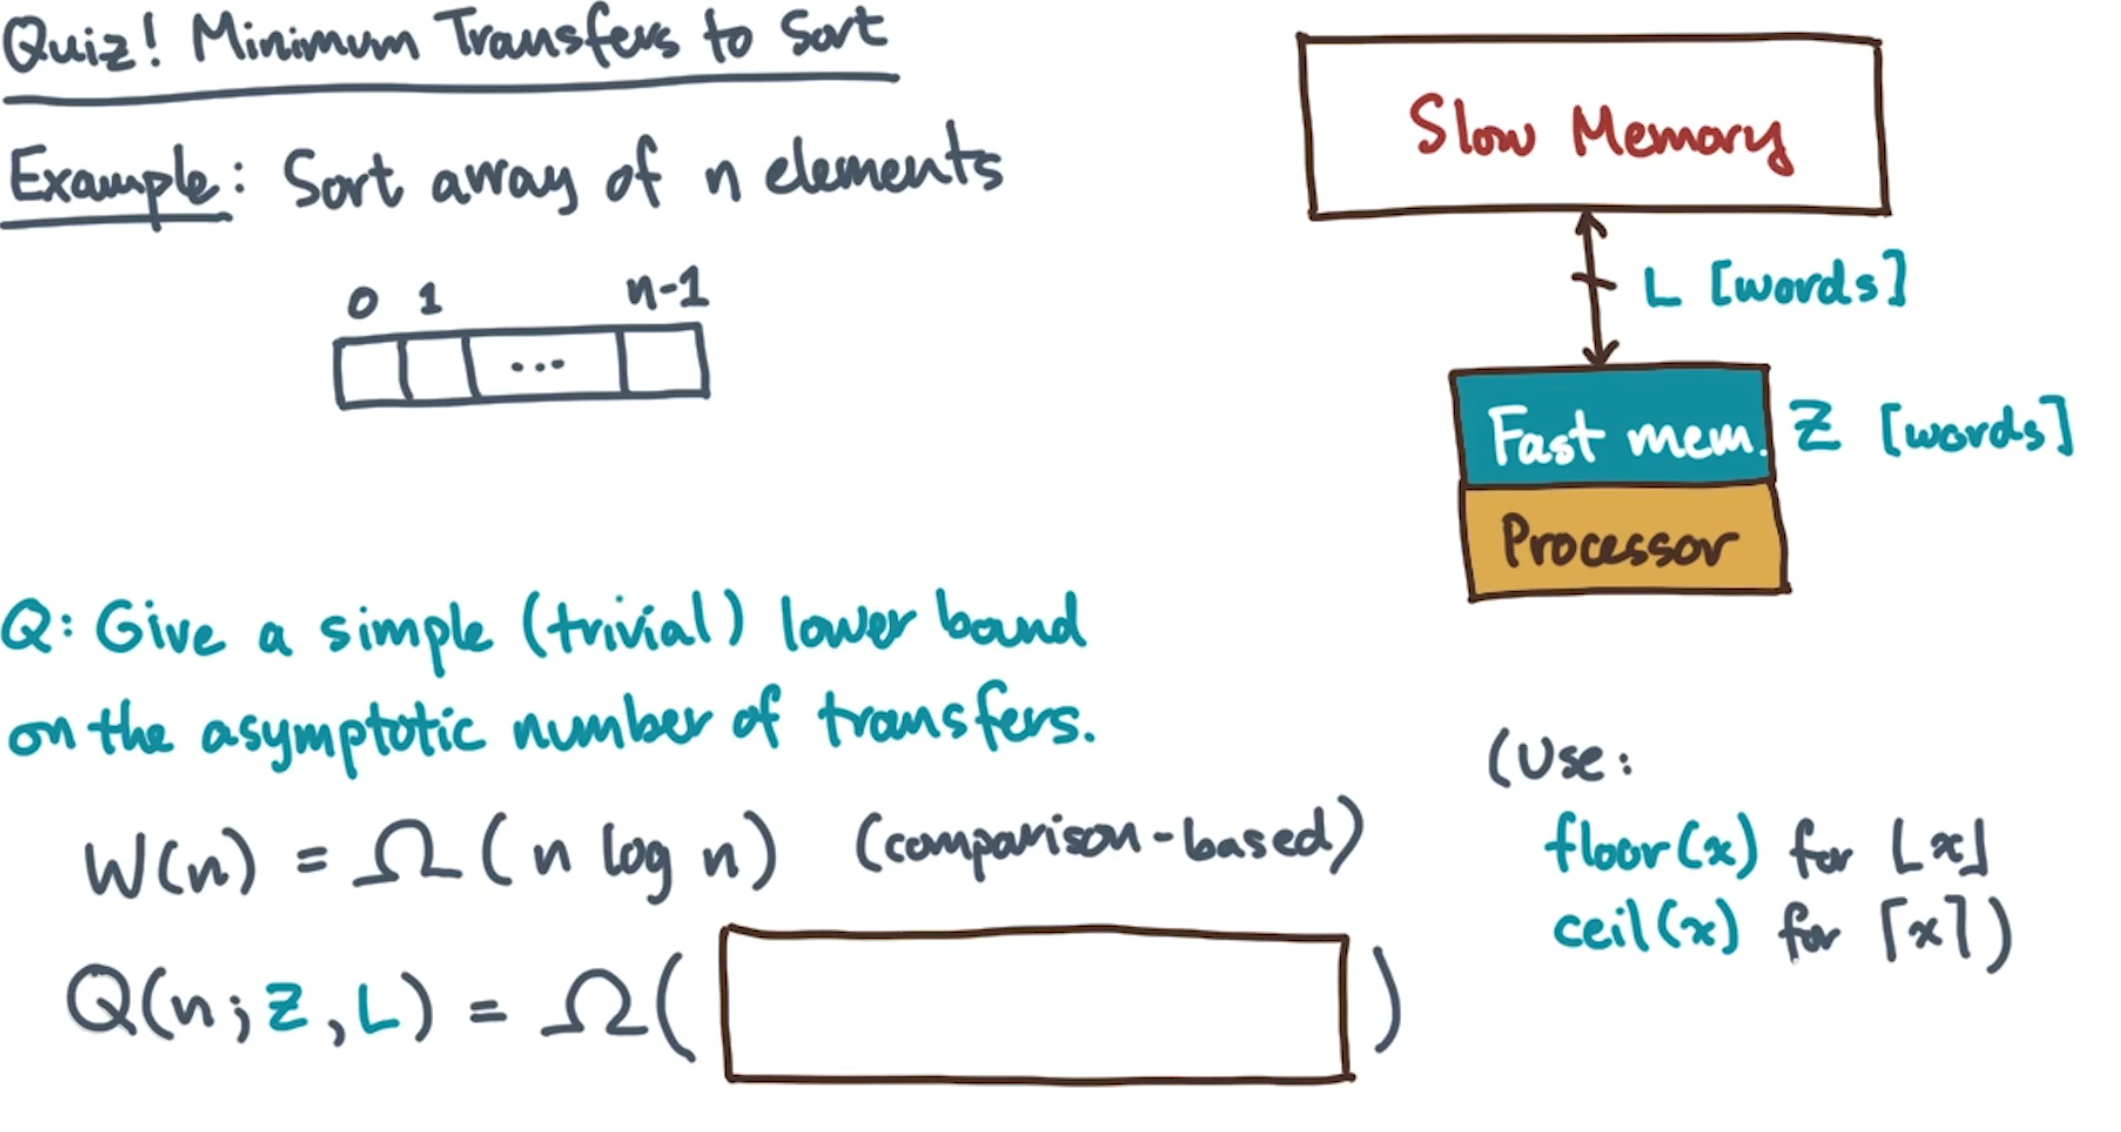 Quiz! Minimum Transfers to Sort
Example: Sort array of n elements
0 1 n-1
...
Slow Memory
L [words]
Fast mem. Z [words]
Processor
Q: Give a simple (trivial) lower bound
on the asymptotic number of transfers.
W(n) = Ω(n log n) (comparison-based)
Q(n; Z, L) = Ω( )
(Use:
floor(x) for ⌊x⌋
ceil(x) for ⌈x⌉)